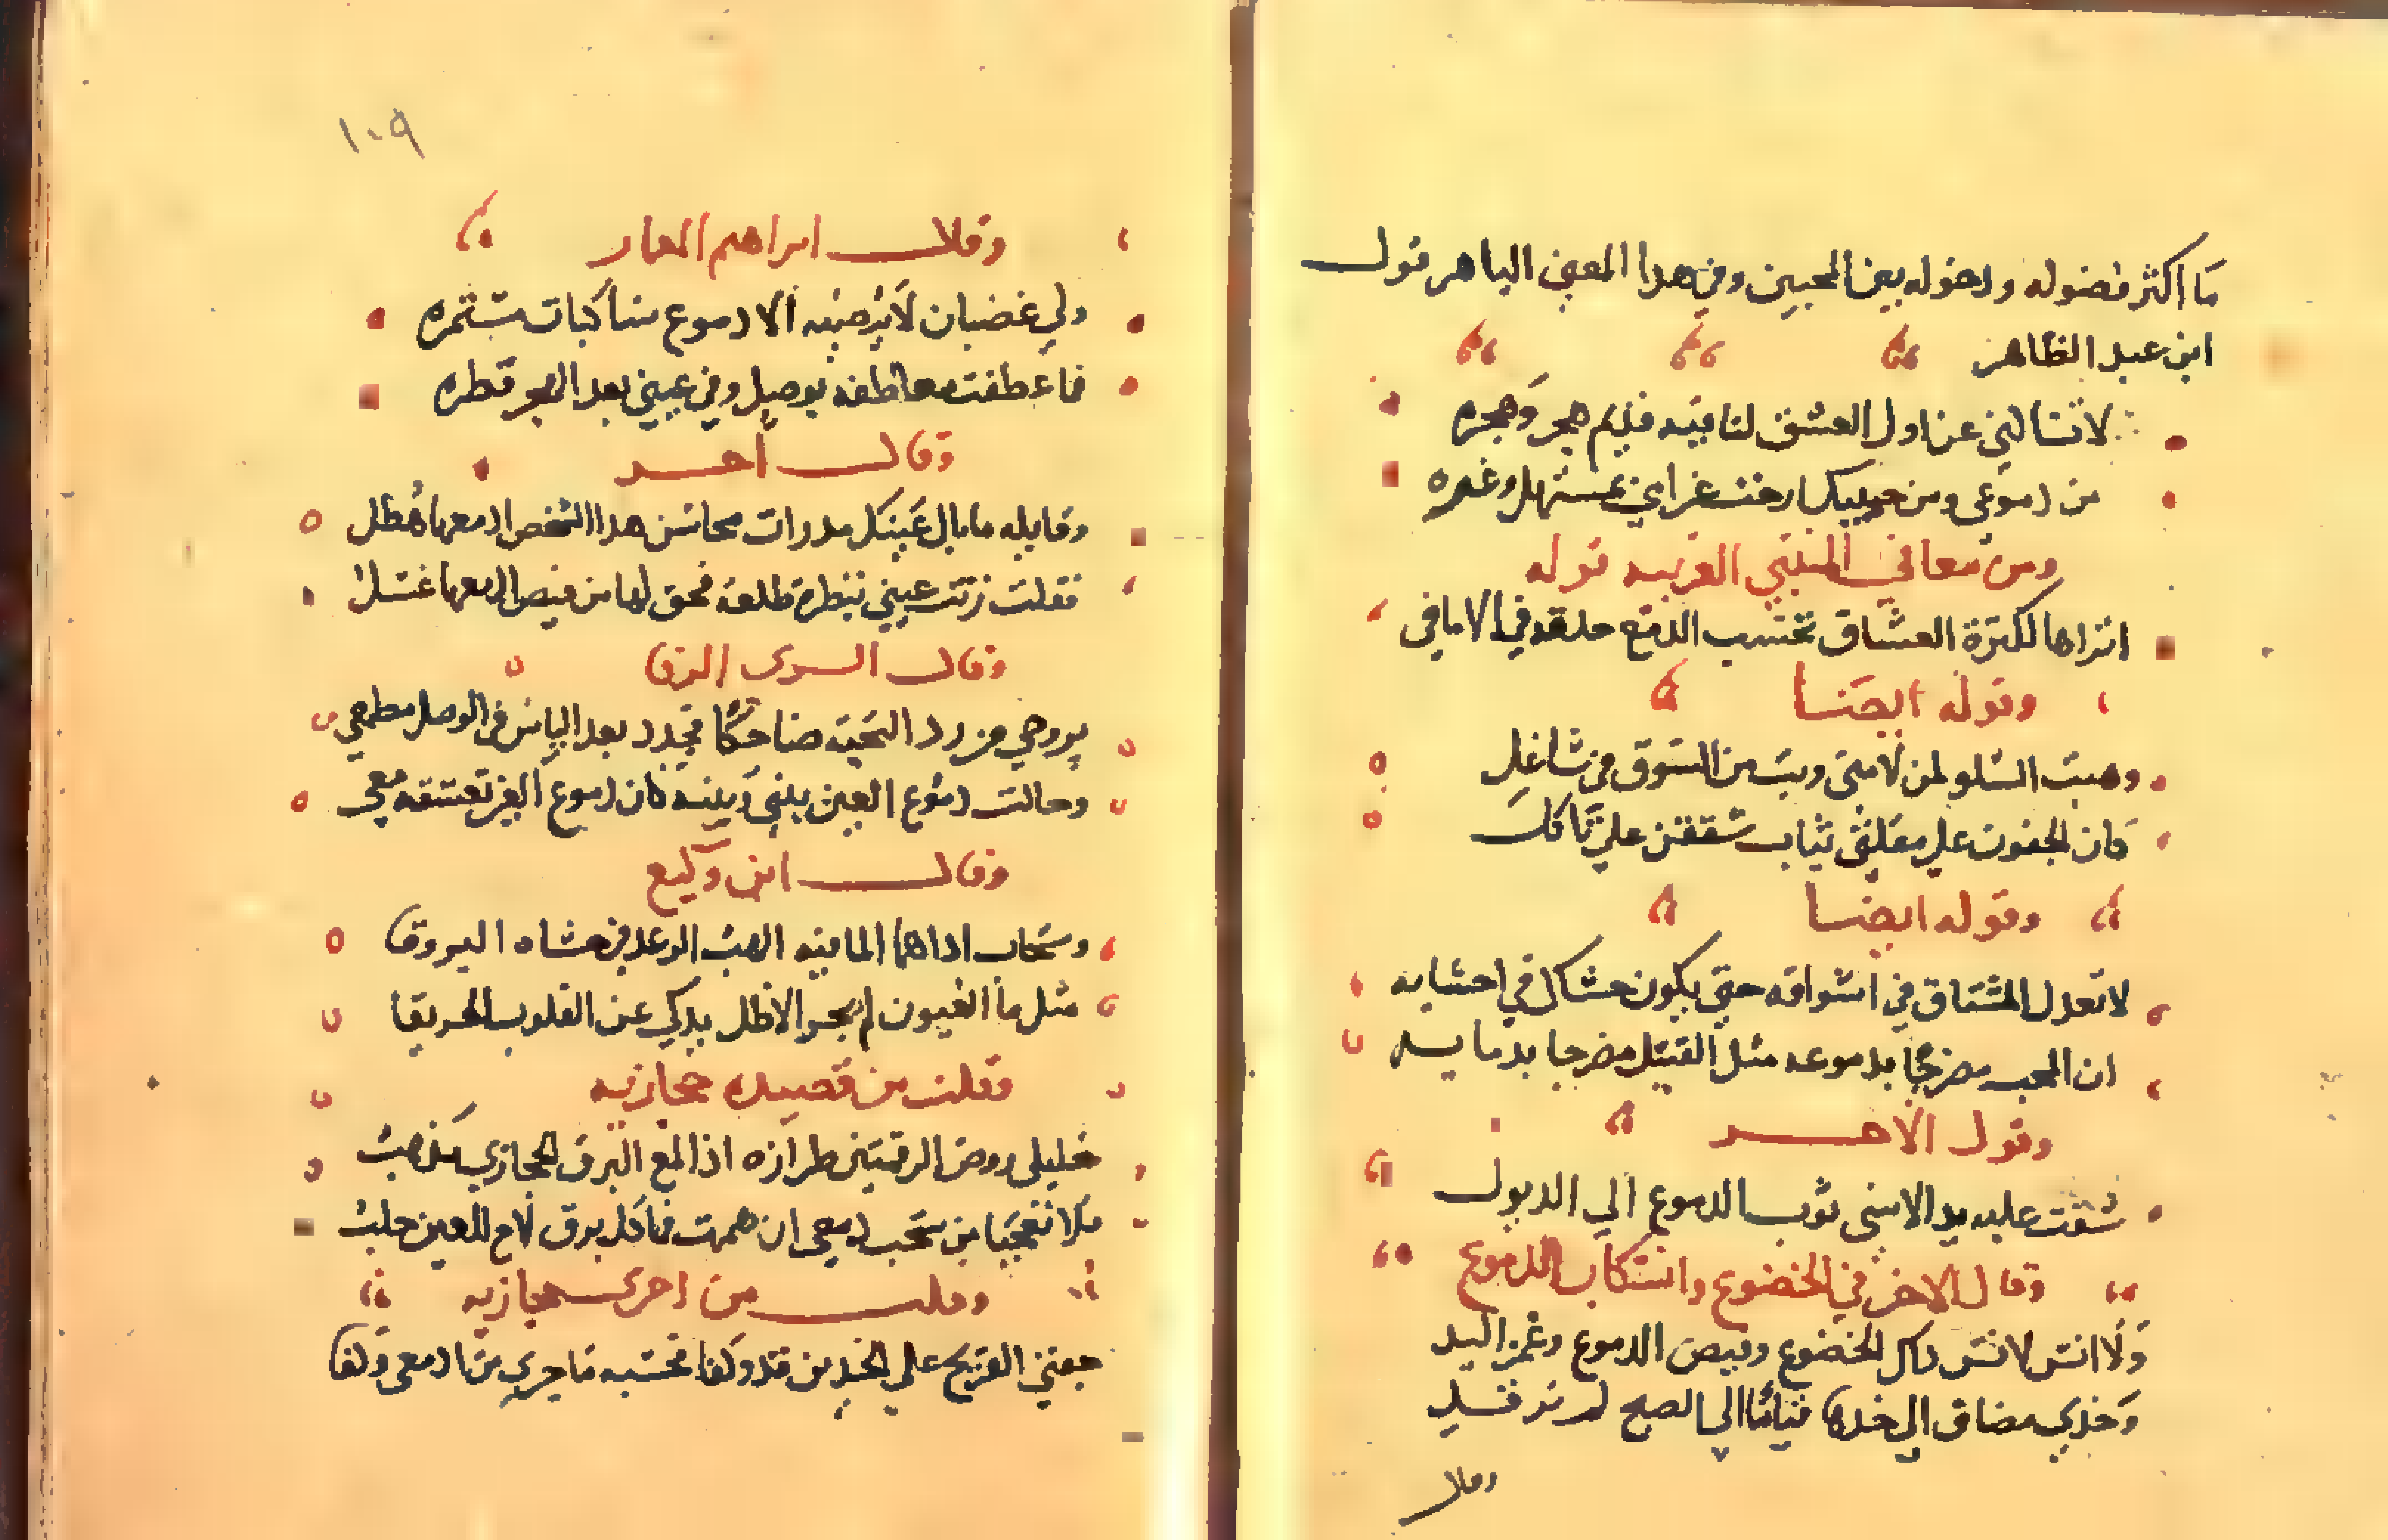 ما اكثر فضوله ودخوله بين المحبين وفي هدا المعنى الباهر قول
ابن عبد الظاهر
لا تسالني عن اول العشق لنا فيه قديم هجر وهجره
من دموعي ومن حبيبك ارخت غرامي بمستهل وغره
ومن معاني المتنبي الغريبه قوله
اتراها لكثرة العشاق تحسب الدمع خلقه في الاماقي
وقوله ايضا
وهبت السلو لمن لامني وبت من الشوق في شاغل
كان الجفون على مقلتي ثياب شققن على ثاكل
وقوله ايضا
لا تعدل المشتاق في اشواقه حتى يكون حشاك في احشايه
ان المحب مضرجا بدموعه مثل القتيل مضرجا بدمايه
وقول الاخر
شقت عليه يد الاسى ثوب الدموع الى الديول
وقال الاخر في الخضوع وانسكاب الدموع
ولا انس لا انس داك الخضوع وفيض الدموع وغمز اليد
وخدي مضاف الى خدها قياما الى الصبح لم نرقد
وقال
١٠٩
وقال ابراهيم المعمار
ولي غضبان لا يرضيه الا دموع ساكبات مستمره
فما عطفت معاطفه بوصل وفي عيني بعد الهجر قطره
وقال آخر
وقايله ما بال عينك مد رات محاسن هدا الشخص ادمعها هطل
فقلت زنت عيني بنظرة طلعة فحق لها من فيض ادمعها غسل
وقال السري الرفا
بروحي من رد التحية ضاحكا فجدد بعد الياس في الوصل مطمعي
وحالت دموع العين بيني وبينه كان دموع العين تعشقه معي
وقال ابن وكيع
وسحاب اداهما الما فيه الهب الرعد في حشاه البروقا
مثل ما العيون لم يجر الا ظل يذكي عن القلوب الحريقا
وقلت من قصيده حجازيه
خليلي روض الرقمتين طرازه اذا لمع البرق الحجازي مذهب
فلا تعجبا من سحب دمعي ان همت فما كل برق لاح للعين خلب
وقلت من اخرى حجازيه
جفني القريح على الخد من قد وكفا تحسبه ما جرى من ادمعي وكفا